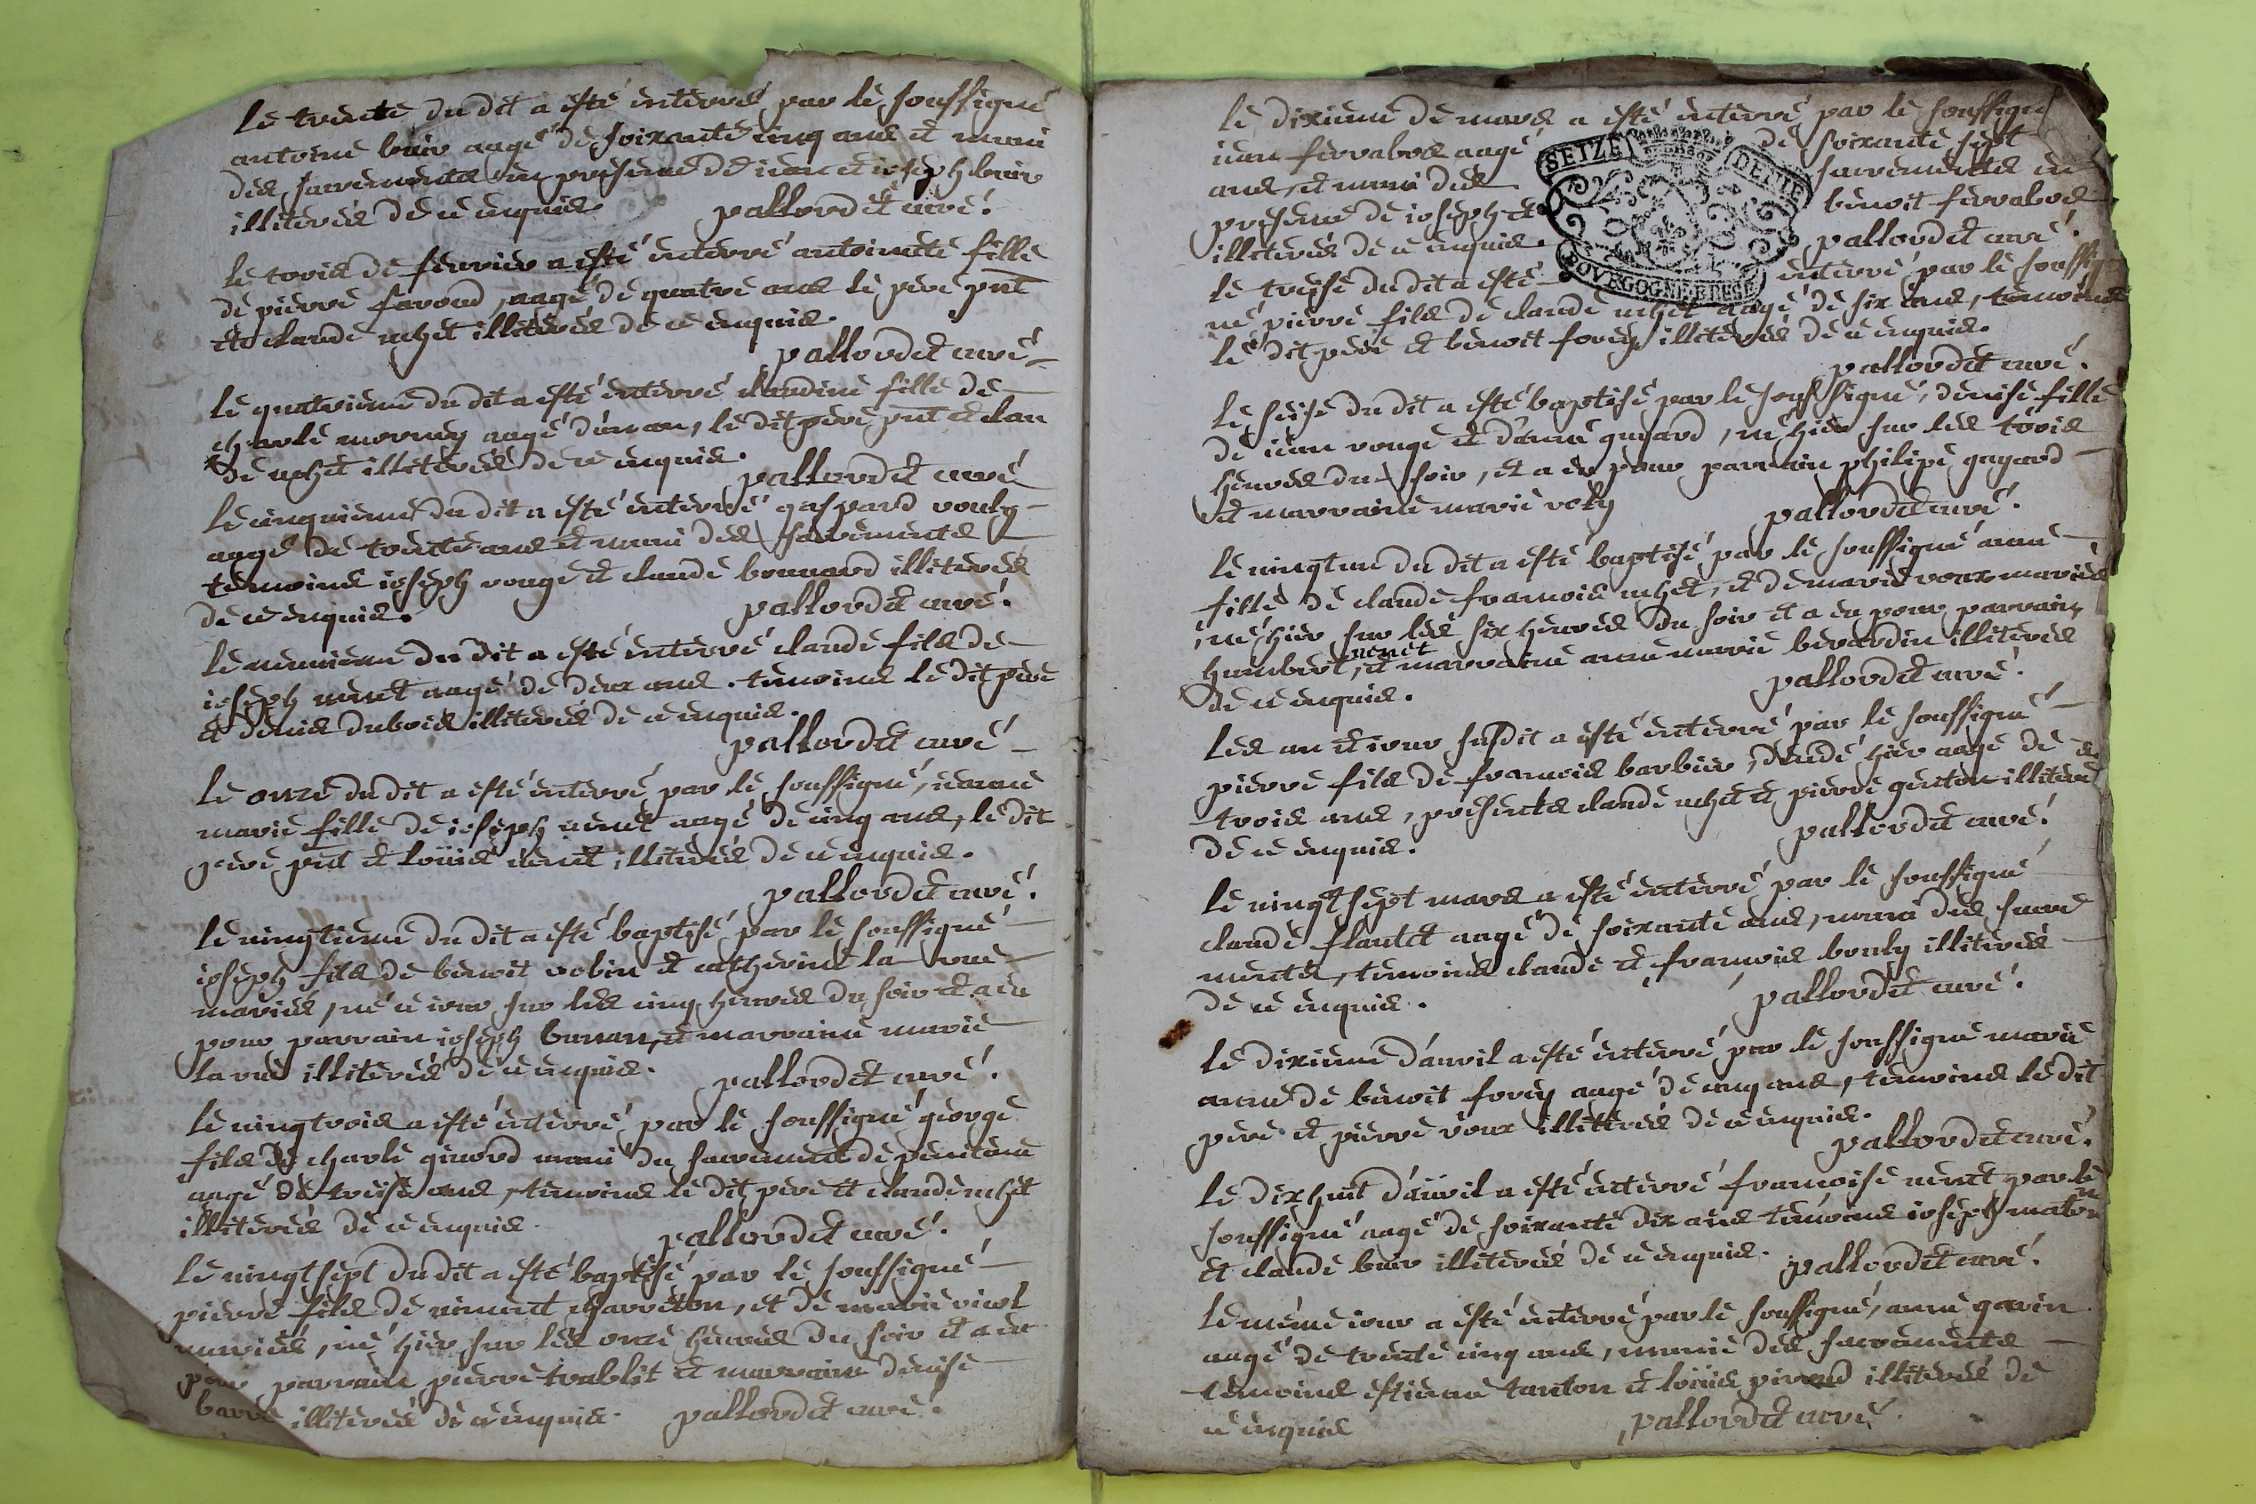 le trente du dit a esté enterré par le soussigné
antoine buir aagé de soixante cinq ans et muni
des sacrements en presence de jean et joseph buir
illiterés de ce enquis. pallordet curé.
le trois de fevrier a esté enterré antoinette fille
de pierre favond, aagé de quatre ans le pere pnt
et claude uchet illiterés de ce enquis.
pallordet curé
le quatrieme du dit a esté enterré claudine fille de
charle morney aagé d'un an, le dit pere pnt et clau
de uchet illiterés de ce enquis.
pallordet curé
le cinquieme du dit a esté enterré gaspard bouly
aagé de trente ans et muni des sacrements
temoins joseph rouge et claude bernard illiterés
de ce enquis. pallordet curé.
le neuvieme du dit a esté enterré claude fils de
joseph venet aagé de deux ans. temoins le dit pere
et denis dubois illiterés de ce enquis.
pallordet curé
le onze du dit a esté enterré par le soussigné, jeanne
marie fille de joseph venet aagé de cinq ans, le dit
pere pnt et loüis venet illiterés de ce enquis.
pallordet curé.
le vingtieme du dit a esté baptisé par le soussigné
joseph fils de benoit robin et catherine la rue
mariés, né ce jour sur les cinq heures du soir et a eu
pour parrain joseph bunan, et marraine marie
la rue illiterés de ce enquis. pallordet curé.
le vingtrois a esté enterré par le soussigné george
fils de charle girord muni du sacrement de penitence
aagé de treise ans, temoins le dit pere et claude uchet
illiterés de ce enquis. pallordet curé.
le vingtsept du dit a esté baptisé par le soussigné
pierre fils de vincent charreton, et de marie viol
mariés, né hier sur les onze heures du soir et a eu
pour parrain pierre trablit et marraine denise
barre illiterés de ce enquis. pallordet curé.
le dixieme de mars a esté enterré par le soussigné
jean ferrabos aagé de soixante sept
ans, et muni des sacrements en
presence de joseph et benoit ferrabos
illiterés de ce enquis. pallordet curé.
SEIZE DENIE
BOVRGOGNE BRESSE
le treise du dit a esté enterré par le soussig
né pierre fils de claude uchet aagé de six ans, temoins
le dit pere et benoit forey illiterés de ce enquis.
pallordet curé.
le seise du dit a esté baptisé par le soussigné, denise fille
de jean rouge et d'anne guyard, né hier sur les trois
heures du soir, et a eu pour parrain philipe guyard
et marraine marie roly pallordet curé.
le vingtun du dit a esté baptisé par le soussigné anne
fille de claude francois uchet, et de marie roux mariés
, né hier sur les six heures du soir et a eu pour parrain
humbert, venet et marraine anne marie berardin illiterés
de ce enquis. pallordet curé.
les an et jour susdit a esté enterré par le soussigné
pierre fils de francois barbier, decedé hier aagé de
trois ans, presents claude uchet et pierre genton illiterés
de ce enquis. pallordet curé.
le vingtsept mars a esté enterré par le soussigné
claude flantet aagé de soixante ans, muni des sacre
ments, temoins claude et francois bouly illiterés
de ce enquis. pallordet curé.
le dixieme d'avril a esté enterré par le soussigné marie
anne de benoit forey aagé de cinq ans, temoins le dit
pere et pierre roux illiterés de ce enquis.
pallordet curé.
le dixhuit d'avril a esté enterré francoise venet par le
soussigné aagé de soixante dix ans temoins joseph maton
et claude buir illiterés de ce enquis. pallordet curé.
le même jour a esté enterré par le soussigné, anne gavin
aagé de trente cinq ans, munie des sacrements
temoins estienne tanton et loüis pirard illiterés de
ce enquis pallordet curé